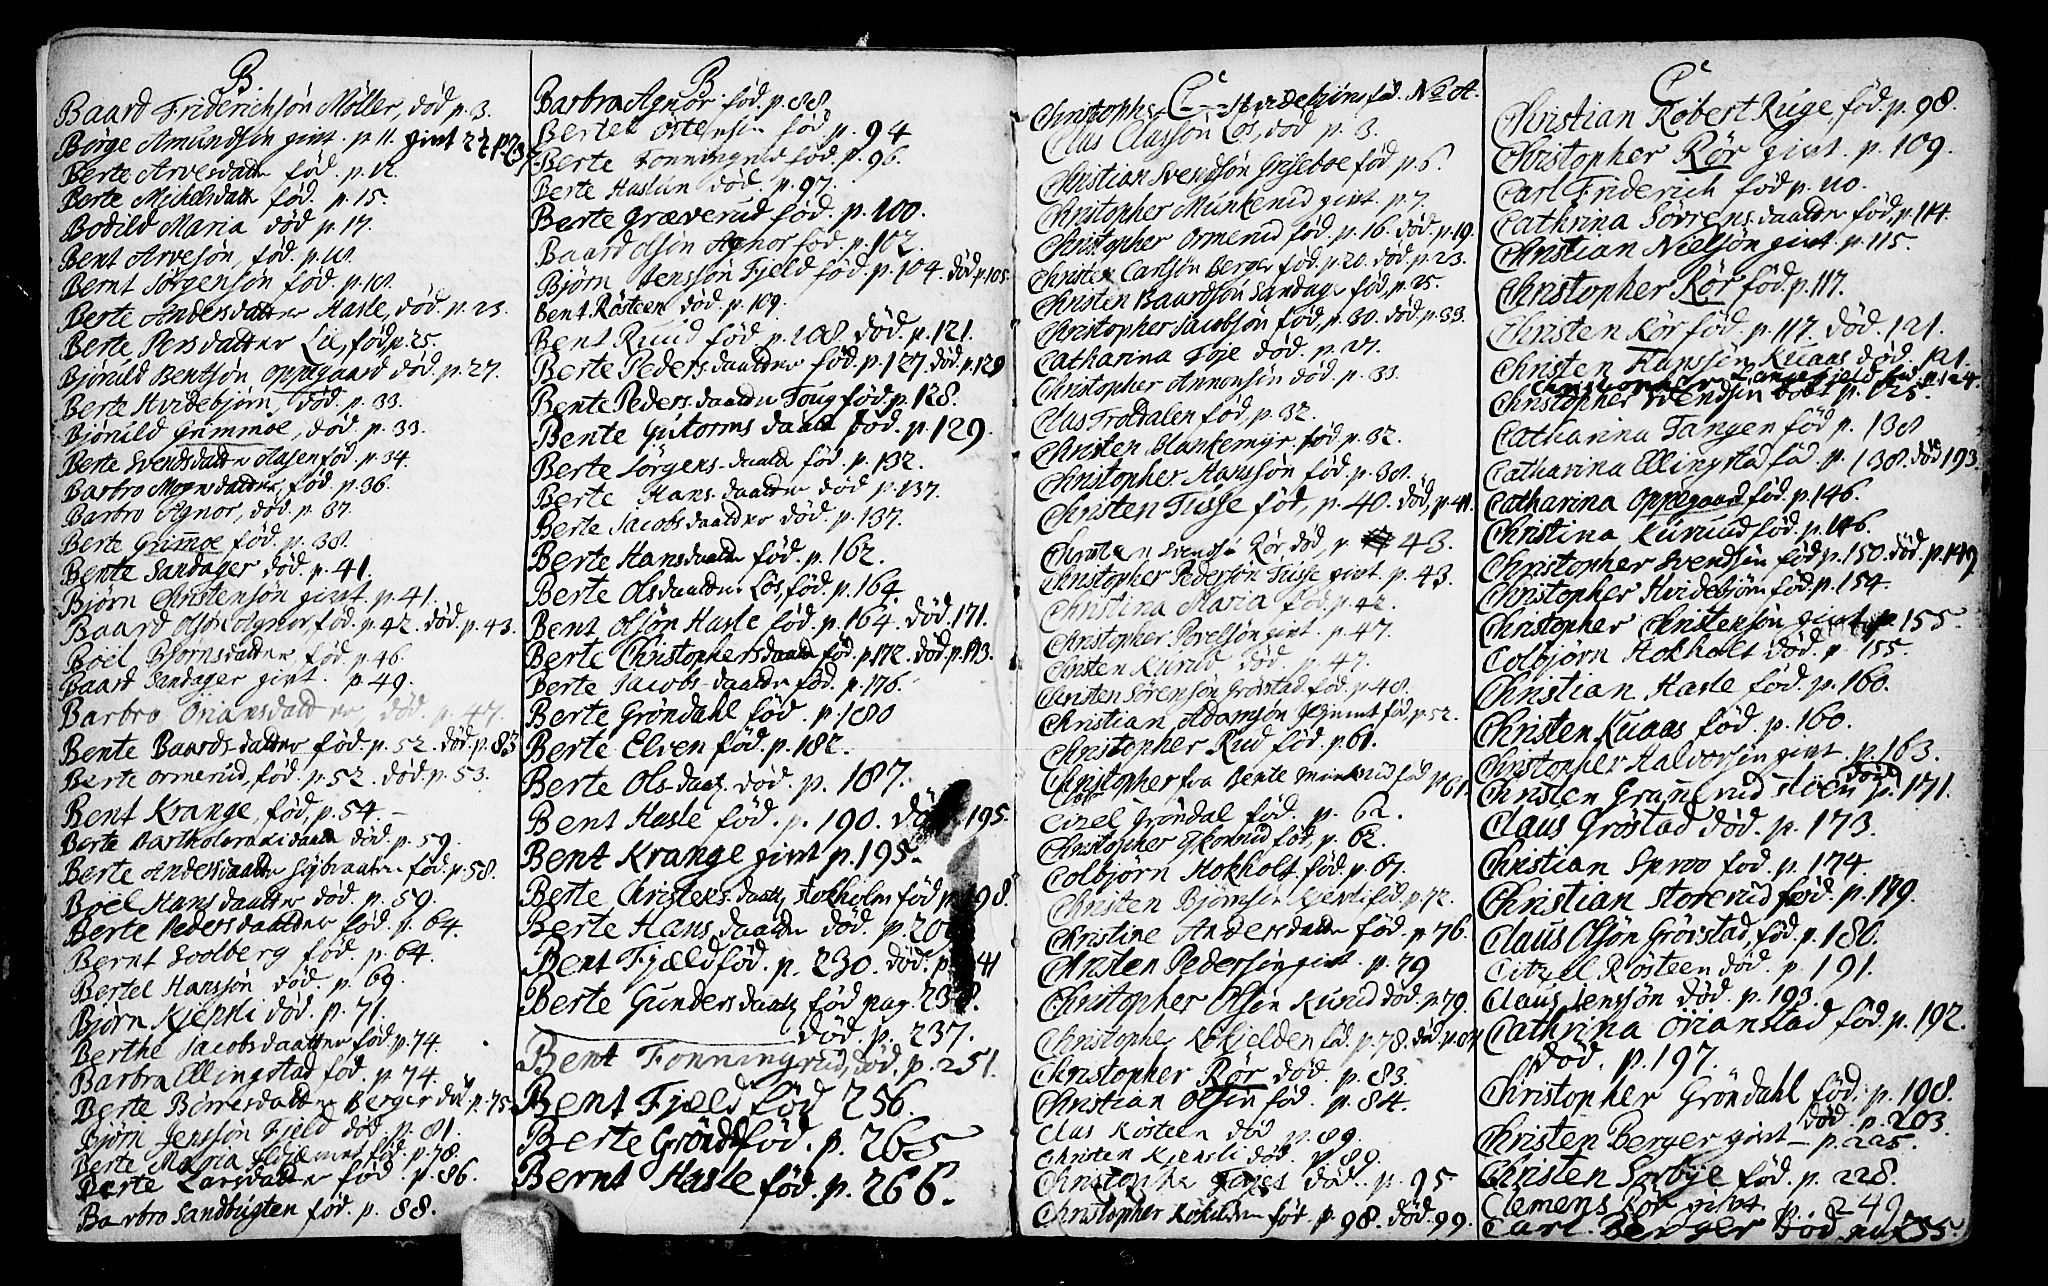 B
Baard Friderichsön Möller, död p. 3.
Börge Amundsön givt. p. 11. givt 22
Berte Arvesdatter föd. p. 12.
Berte Mickelsdatter föd. p. 15.
Bodild Maria död p. 17.
Bent Arvesön, föd. p.
Bernt Jörgensön föd. p. 18.
Berte Andersdatter Hasle, död. p. 23.
Berte Persdatter Lie, föd p. 25.
Bjönild Bentsön Oppegaard död. p. 27.
Berte Hvidebjörn död. p. 33.
Bjönild Grimmöe, död. p. 33.
Berte Svendsdatter Aasen föd. p. 34.
Barbro Mognsdatter, föd p. 36.
Barbro Agnor, död. p. 37.
Berte Grimöe föd. p. 38.
Bente Sandager död. p. 41.
Björn Christensön givt p. 41.
Baard Olsön Agnor, föd. p. 42. död. p. 43.
Boel Björnsdatter föd. p. 46.
Baard Sandager givt. p. 49.
Barbro Driansdatter, död. p. 47.
Bente Baardsdatter föd. p. 52. död. p. 83
Berte Ormerud, föd. p. 52. död. p. 53.
Bent Krange, föd, p. 54. –
Berte Bartholomæidaatter död. p. 59.
Berte Andersdaatter föd. p. 58.
Boel Hansdaatter död. p. 59.
Berte Pedersdaatter föd. p. 64.
Bernt Soelberg föd. p. 64.
Bertel Hanssön död. p. 69.
Björn Kjensli död. p. 71.
Berthe Jacobsdaatter föd p. 74.
Barbra Ellingstad föd. p. 74.
Berte Börresdatter Berger död p. 75.
Björn Jenssön Fjeld död. p. 81.
Berte Maria föd. p. 78.
Berte Larsdatter föd. p. 86.
Barbro Sandbugten föd. p. 88.
B
Barbra Agnor föd. p. 88.
Bertel Östensen föd p. 94
Berte Fonningrud föd. p. 96.
Berte Haslun död. p. 97.
Berte Græverud föd. p. 100.
Baard Olsön Agnor föd. p. 102.
Björn Jenssön Fjeld föd. p. 104. död p. 105.
Bent Rösteen död. p. 109.
Bent Ruud föd p. 108. död. p. 121.
Berte Pedersdaatter föd. p. 127. död. p. 129
Bente Pedersdaatter Toug föd. p. 128.
Bente Gutormsdaatter föd. p. 129.
Berte Jörgensdaatter föd. p. 132.
Berte Hansdaatter död p. 137.
Berte Jacobsdaatter död. p. 137.
Berte Hansdaatter föd. p. 162.
Berte Olsdaatter Los, föd. p. 164.
Bent Olsön Hasle föd p. 164. död. 171.
Berte Christophersdaatter föd. p. 172. död. p. 193.
Berte Jacobsdaatter föd. p. 176.
Berte Gröndahl föd. p. 180
Berte Elven föd. p. 182.
Berte Olsdaatter död. p. 187.
Bent Hasle föd. p. 190. död 195.
Bent Krange givt p. 195.
Berte Christensdaatter Stokholm föd p. 198.
Berte Hansdaatter död. p. 20
Bent Fjeld föd. p. 230. död. p. 241
Berte Gundersdaatter föd pag. 238.
död. p. 237.
Bent Fonningrud, död. p. 251.
Bent Fjeld föd 256.
Berte Gröndal föd. p. 265
Bernt Hasle föd. p. 266.
C
Christopher Hvidebjörn föd. No A.
Clas Clasön Los, död p. 3.
Christian Svendsön Gyseboe föd p. 6.
Christopher Munkerud givt p. 7.
Christopher Ormerud föd. p. 16. död. p. 19.
Christen Carlsön Berger föd. p. 20. död. p. 23.
Christen Baardsön Sandager föd, p. 25.
Christopher Jacobsön föd. p. 30. död. p. 33.
Catharina Toje död. p. 27.
Christopher Annonsön död. p. 33.
Clas Troldalen föd, p. 32.
Christen Blankemyr, föd. p. 32.
Christopher Hanssön föd. p. 38.
Christen Tusse föd, p. 40. död, p. 41.
Christen Svends: Rör död, p. 43.
Christopher Pedersön Tusse givt p. 43.
Christina Maria föd. p. 42.
Christopher Povelsön givt p. 47.
Christen Kurud död. p. 47.
Christen Sörensön Gröstad föd. p. 48.
Christian Adamsön föd p. 52.
Christopher Rud föd. p. 61.
Christopher fra Bente Munkrud föd p. 61.
Cizel Gröndal föd. p. 62.
Christopher Ekornrud föd, p. 62.
Colbjörn Hokholt föd. p. 67.
Christen Björnsön Kjensli föd p. 72.
Christine Andersdaatter föd. p. 76.
Christen Pedersön givt. p. 79
Christopher Olsen Kurud död. p. 79.
Christopher Kokjelden föd. p. 78. död. p. 81
Christopher Rör död. p. 83.
Christian Olsen föd. p. 84.
Clas Rösteen död p. 89.
Christen Kjensli död. p. 89.
Christopher död. p. 95.
Christopher Kokilden föd. p. 98. död. 99.
C
Christian Robert Ruge föd. p. 98.
Christopher Rör givt. p. 109.
Carl Friderich föd p. 110.
Cathrina Sörrensdaatter föd. p. 114.
Christian Nielsön givt. p. 115.
Christopher Rör föd. p. 117.
Christen Rör föd. p. 117. död. 121.
Christen Hanssön Kuaas död. 121.
Christopher Langefjeld föd. p. 124.
Christopher Svendsen Toet p. 125.
Catharina Tangen föd p. 138
Catharina Ellingstad föd. p. 138. död 193.
Catharina Oppegaard föd. p. 146.
Christina Kurud föd. p. 146.
Christopher Svendsön föd p. 150. död. p. 149.
Christopher Hvidebjörn föd. p. 154.
Christopher Christensön givt p. 155.
Colbjörn Hokholt död. p. 155.
Christian Hasle föd. p. 160.
Christen Kuaas föd. p. 160.
Christopher Halvorsen givt p. 163.
Christen Granerud död p. 171.
Claus Gröstad död. p. 173.
Christian Sproo föd. p. 174.
Christian Storerud föd. p. 179.
Claus Olsön Grövstad, föd. p. 180.
Citzel Rösteen död. p. 191.
Claus Jenssön död. p. 193.
Cathrina Orianstad föd. p. 192.
död. p. 197.
Christopher Gröndahl föd. p. 198.
död. p. 203.
Christen Berger givt – p. 225.
Christen Sorbye föd. p. 228.
Clemens Rör givt. p. 249
Carl Berger Död. pag 255.